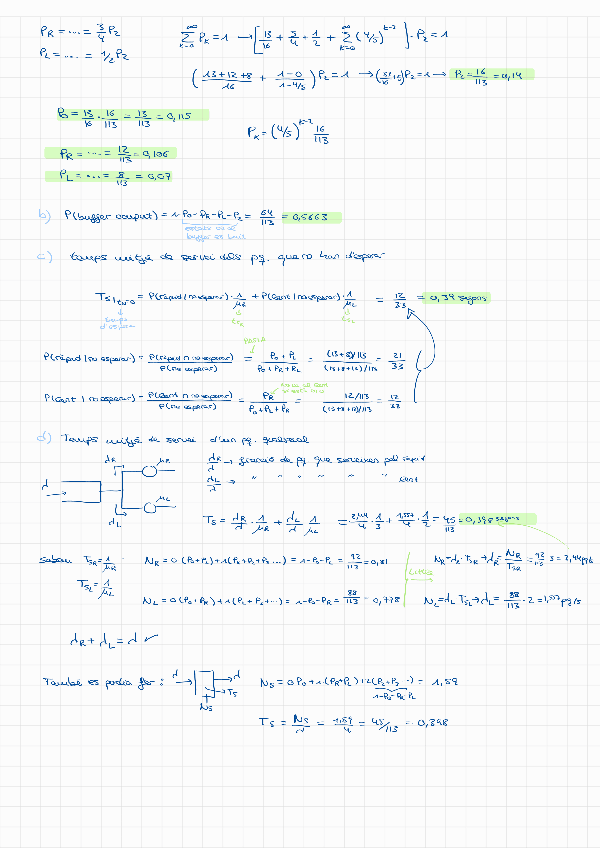 P_R = ... = 3/4 P_2
P_L = ... = 1/2 P_2
∞ Σ k=0 P_K = 1 → [13/16 + 3/4 + 1/2 + ∞ Σ k=2 (4/5)^(k-2)] · P_2 = 1
((13+12+8)/16 + (1-0)/(1-4/5)) P_2 = 1 → (33/16 + 5) P_2 = 1 → P_2 = 16/113 = 0,14
P_0 = 13/16 · 16/113 = 13/113 = 0,115
P_K = (4/5)^(K-2) 16/113
P_R = ... = 12/113 = 0,106
P_L = ... = 8/113 = 0,07
b) P(buffer ocuput) = 1-P_0-P_R-P_L-P_2 = 64/113 = 0,5663
buffer és buit
c) temps mitjà de servei dels pq. que no han d'esperar
T_S | tw=0 = P(ràpid/no esperar) · 1/μ_R + P(lent/no esperar) · 1/μ_L = 12/33 = 0,39 segons
temps d'espera
t_SR t_SL
P(ràpid/no esperar) = P(ràpid ∩ no esperar)/P(no esperar) = (P_0+P_L)/(P_0+P_R+P_L) = ((13+8)/113)/((13+8+12)/113) = 21/33
P(lent/no esperar) = P(lent ∩ no esperar)/P(no esperar) = P_R/(P_0+P_L+P_R) = (12/113)/((13+8+12)/113) = 12/33
d) Temps mitjà de servei d'un pq. qualsevol
λ λ_R μ_R λ_L μ_L
λ_R/λ → fracció de pq que serveixen pel ràpid
λ_L/λ → " " " " " " lent
T_S = λ_R/λ · 1/μ_R + λ_L/λ · 1/μ_L = 2,44/4 · 1/3 + 1,557/4 · 1/2 = 45/113 = 0,398 segons
sabem T_SR = 1/μ_R
T_SL = 1/μ_L
N_R = 0(P_0+P_L) + 1(P_R+P_2+P_3 ...) = 1-P_0-P_L = 92/113 = 0,81
Little
N_R = λ_R T_SR → λ_R = N_R/T_SR = 92/113 · 3 = 2,44 pq/s
N_L = 0(P_0+P_R) + 1(P_L+P_2+ ...) = 1-P_0-P_R = 88/113 = 0,778
N_L = λ_L T_SL → λ_L = 88/113 · 2 = 1,557 pq/s
λ_R + λ_L = λ ✓
També es podia fer: λ λ T_S N_S
N_S = 0P_0 + 1(P_R+P_L) + 2(P_2+P_3 ...) = 1,59
1-P_0-P_R-P_L
T_S = N_S/λ = 1,59/4 = 45/113 = 0,398